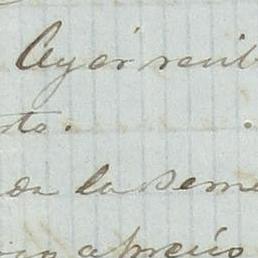 Ayer recib
to.
da la sema
aprecio